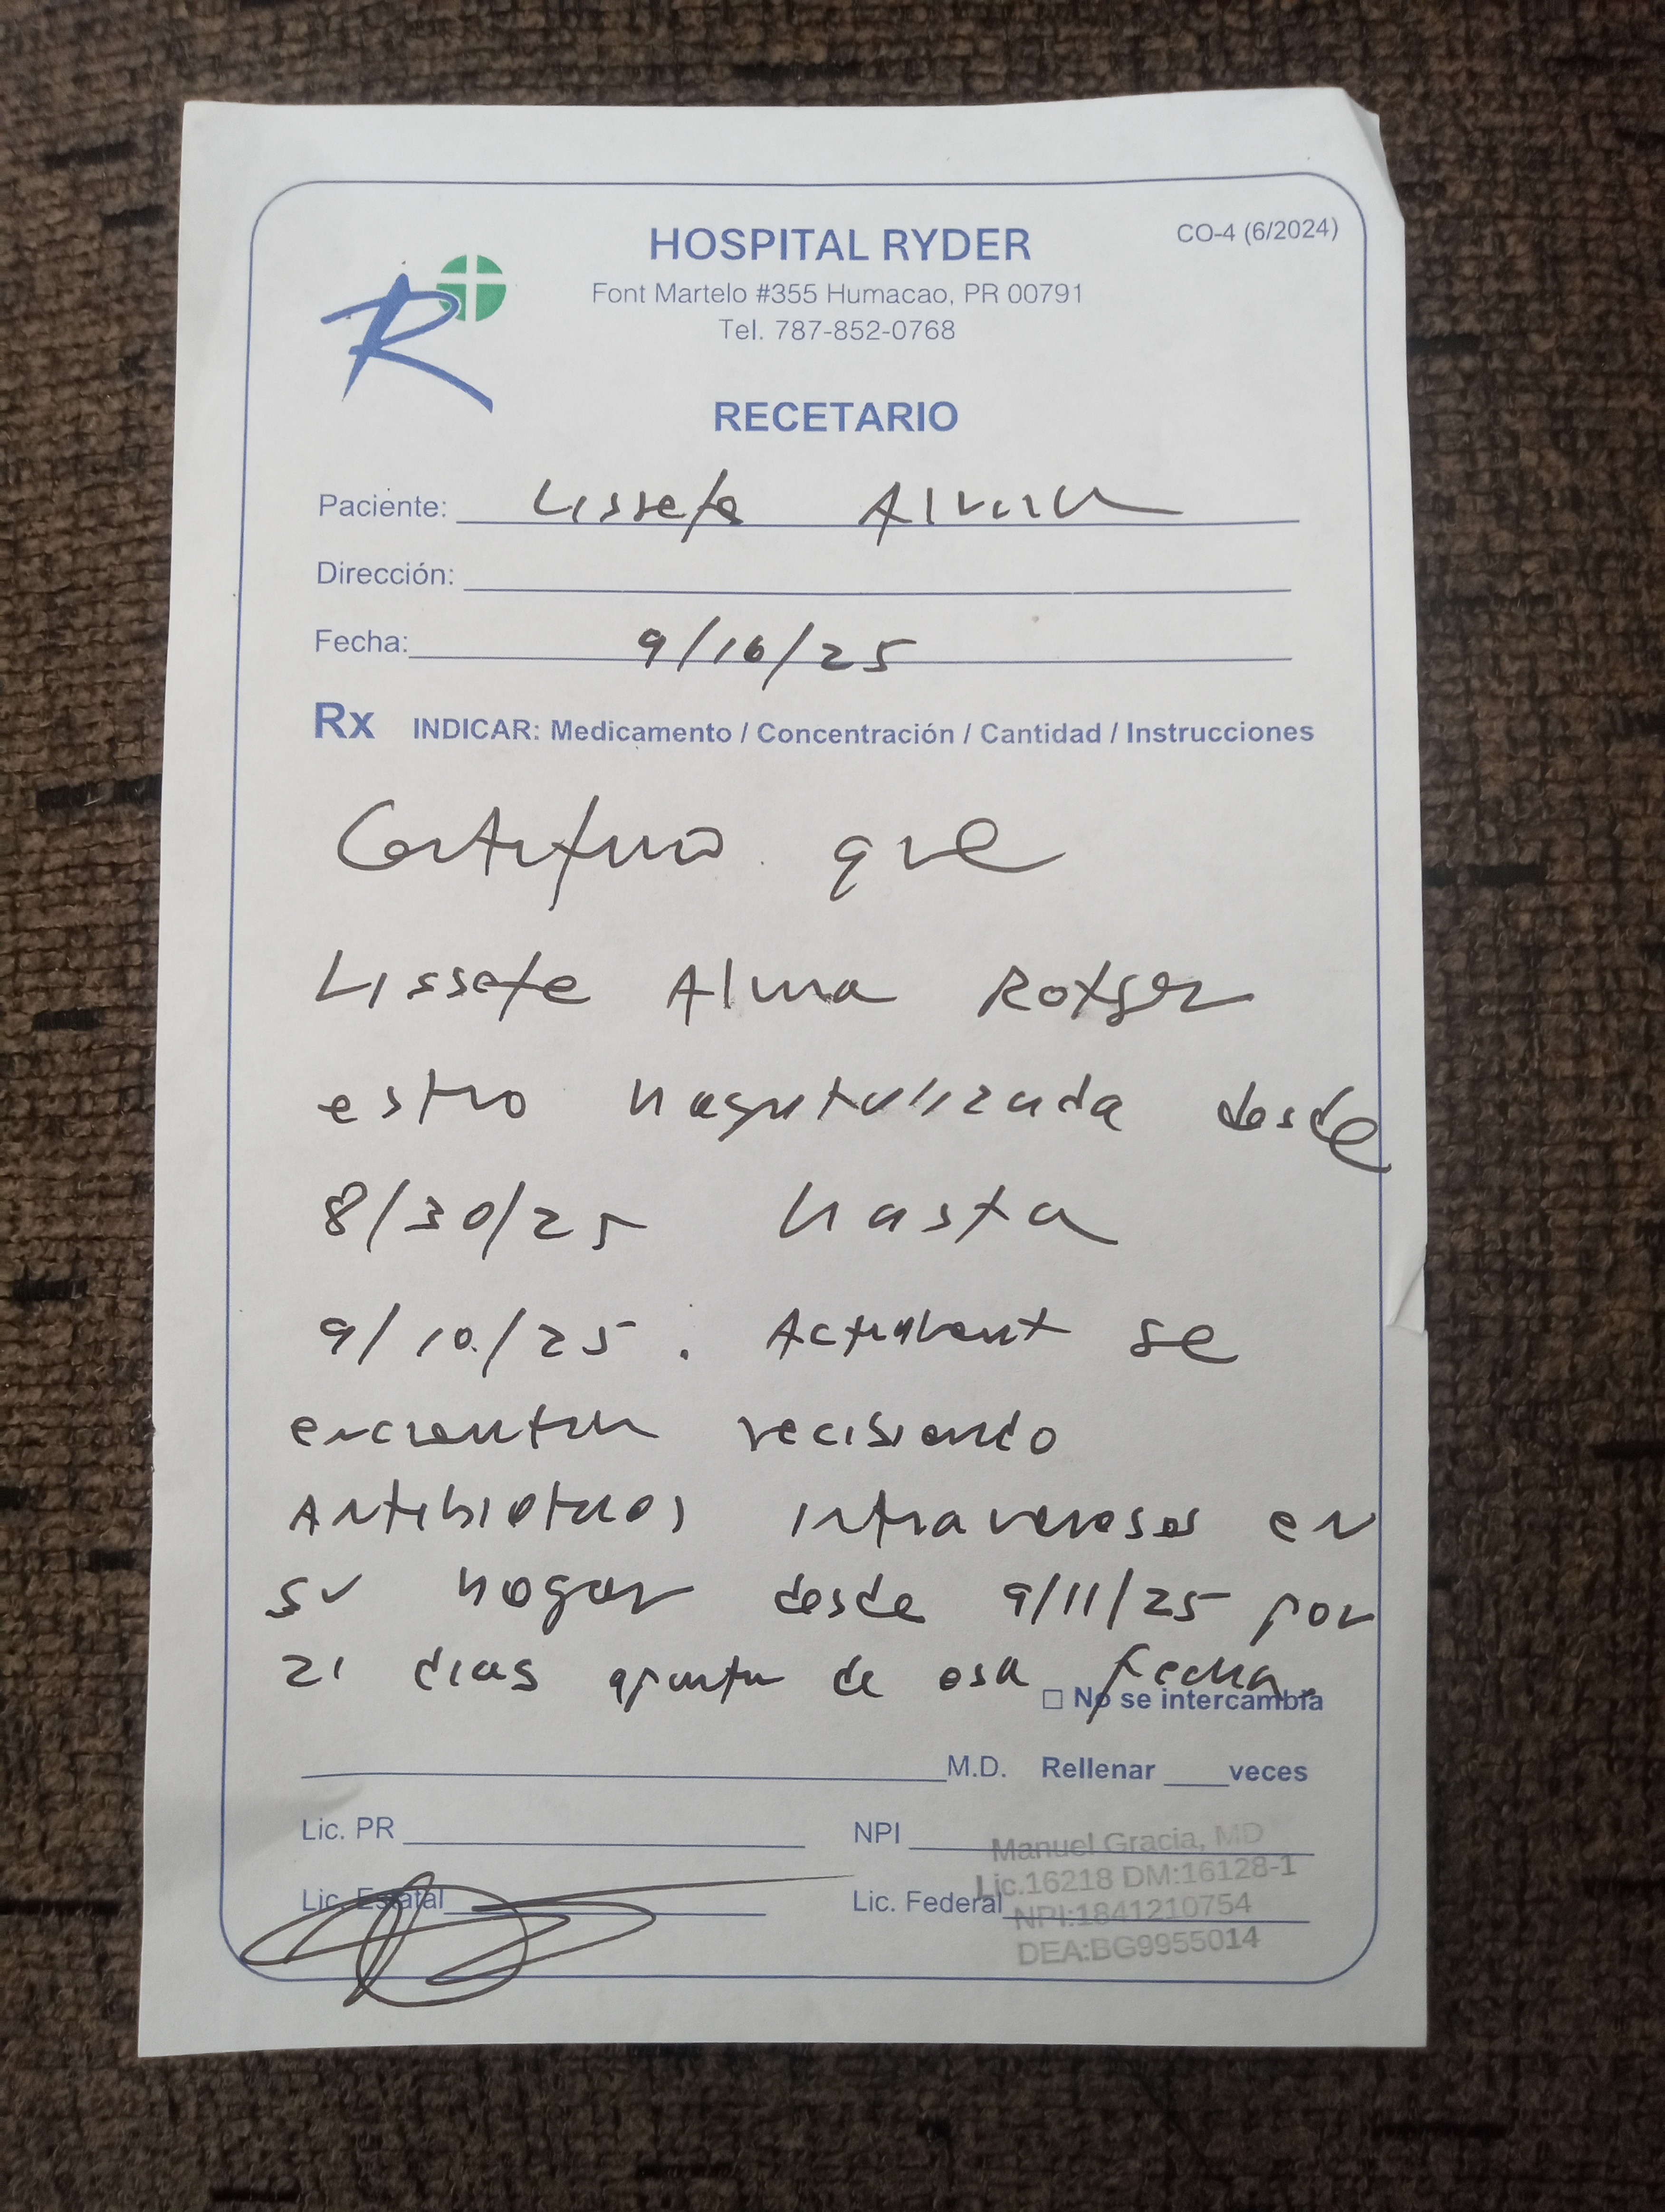 CO-4 (6/2024)
HOSPITAL RYDER
Font Martelo #355 Humacao, PR 00791
Tel. 787-852-0768
R
RECETARIO
Paciente: Lissete
Dirección:
Fecha: 9/16/25
Rx INDICAR: Medicamento / Concentración / Cantidad / Instrucciones
Certifico que
Lissete Alma Rotger
estuvo hospitalizada desde
8/30/25 hasta
9/10/25. Actualment se
encuentra recibiendo
Antibioticos intravenosos en
su hogar desde 9/11/25 por
21 dias apartir de esa fecha.
No se intercambia
M.D. Rellenar ____ veces
Lic. PR NPI
Manuel Gracia, MD
Lic.16218 DM:16128-1
Lic. Estatal Lic. Federal
NPI:1841210754
DEA:BG9955014